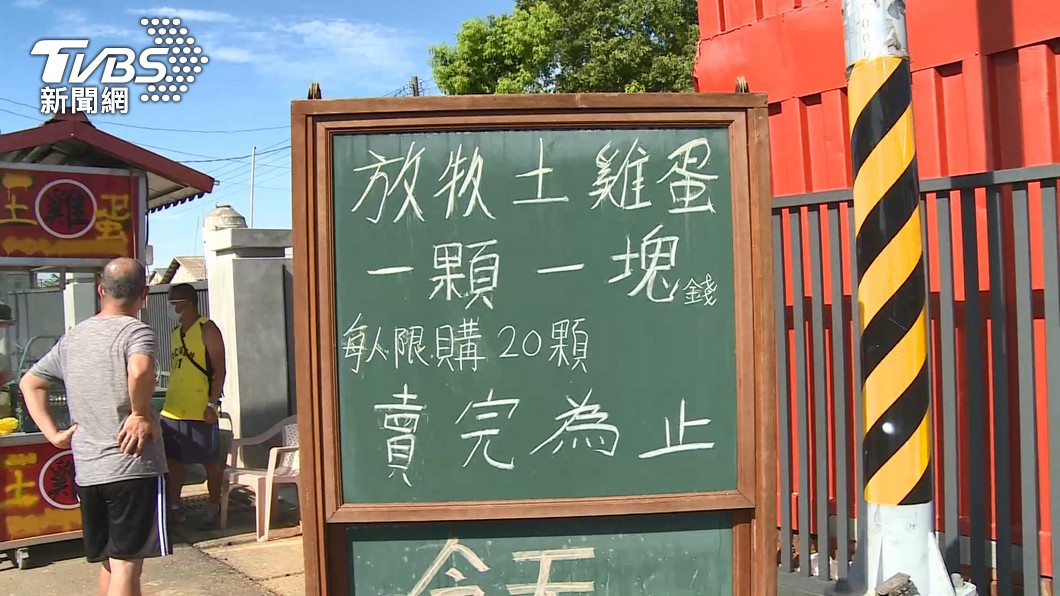 TVBS
新聞網
放牧土雞蛋
一顆一塊錢
每人限購20顆
賣完為止
今天
土雞蛋
土雞